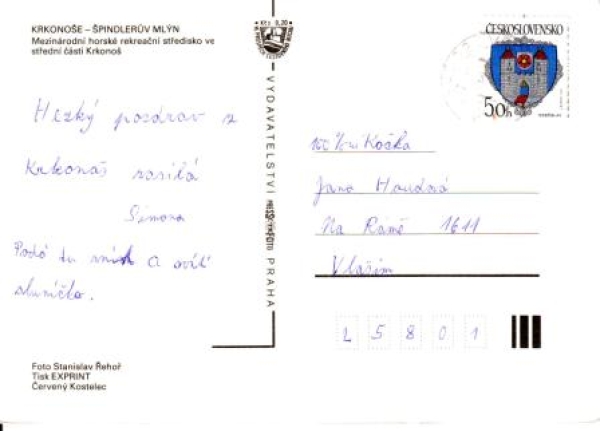 KRKONOŠE – ŠPINDLERŮV MLÝN
Mezinárodní horské rekreační středisko ve
střední části Krkonoš
Hezký pozdrav z
Krkonoš zasílá
Simona
Padá tu sníh a svítí
sluníčko.
Foto Stanislav Řehoř
Tisk EXPRINT
Červený Kostelec
Kčs 0,20
VYDAVATELSTVÍ PRESSFOTO PRAHA
ČESKOSLOVENSKO
50h
100%ní Kočka
Jana Houdová
Na Rámě 1611
Vlašim
25801